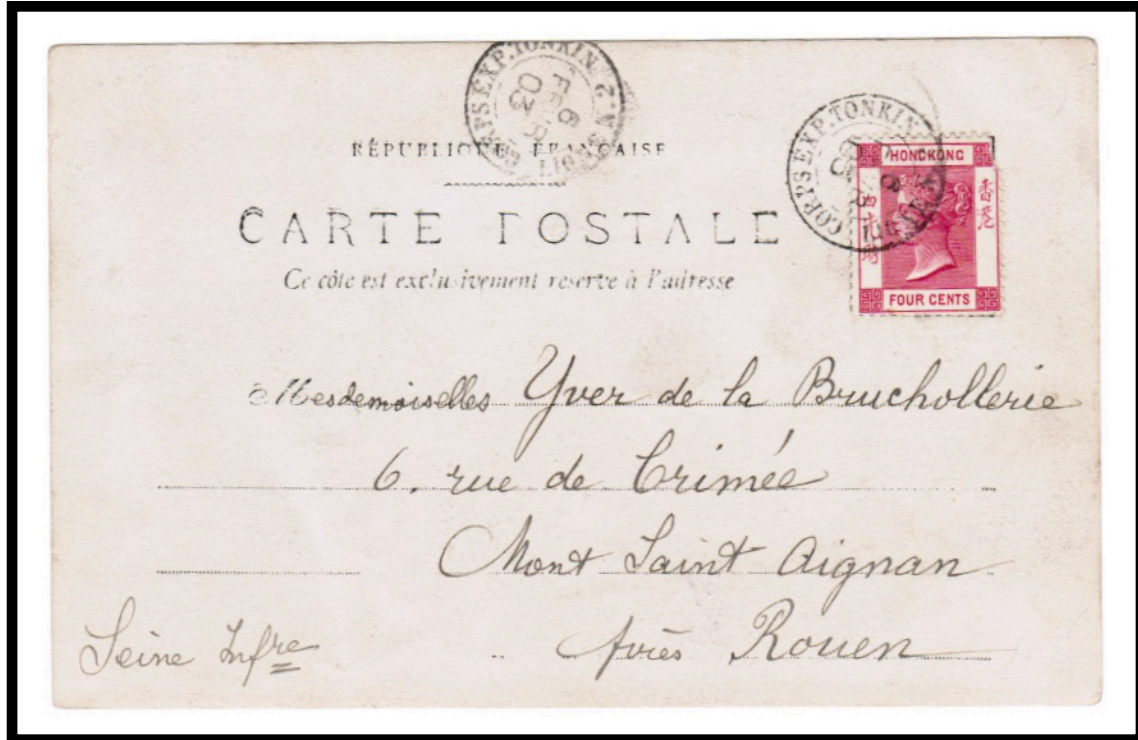 CORPS EXP. TONKIN
LIGNE N.2
6
FEVR
03
RÉPUBLIQUE FRANÇAISE
CARTE POSTALE
Ce côté est exclusivement reservé à l'adresse
CORPS EXP. TONKIN
HONGKONG
香港
四先時
FOUR CENTS
Mesdemoiselles Yver de la Bruchollerie
6. rue de Crimée
Mont Saint Aignan
près Rouen
Seine Infre